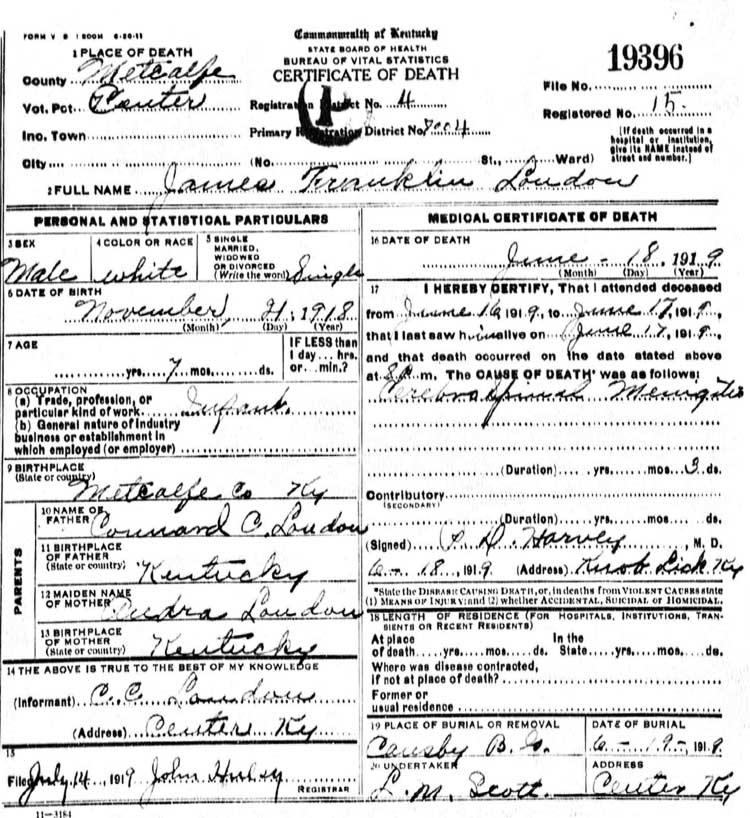 FORM V S 1 500M 6-20-11
Commonwealth of Kentucky
STATE BOARD OF HEALTH
BUREAU OF VITAL STATISTICS
CERTIFICATE OF DEATH
19396
1 PLACE OF DEATH
County Metcalfe
Vot. Pct. Center
Inc. Town
City
Registration District No. 4
1
Primary Registration District No. 7004
File No.
Registered No. 15.
[If death occurred in a
hospital or institution,
give its NAME instead of
street and number.]
(No. St., Ward)
2 FULL NAME James Franklin Loudon
PERSONAL AND STATISTICAL PARTICULARS
3 SEX
Male
4 COLOR OR RACE
white
5 SINGLE
MARRIED,
WIDOWED
OR DIVORCED
(Write the word) Single
6 DATE OF BIRTH
November, 21, 1918
(Month) (Day) (Year)
7 AGE
yrs. 7 mos. ds.
IF LESS than
1 day... hrs.
or... min.?
8 OCCUPATION
(a) Trade, profession, or
particular kind of work Infant
(b) General nature of industry
business or establishment in
which employed (or employer)
9 BIRTHPLACE
(State or country)
Metcalfe Co Ky
PARENTS
10 NAME OF
FATHER Connard C. Loudon
11 BIRTHPLACE
OF FATHER
(State or country) Kentucky
12 MAIDEN NAME
OF MOTHER Loudon
13 BIRTHPLACE
OF MOTHER
(State or country) Kentucky
14 THE ABOVE IS TRUE TO THE BEST OF MY KNOWLEDGE
(Informant) C. C. Loudon
(Address) Center Ky
15
Filed July 14, 1919 John
REGISTRAR
11-3184
MEDICAL CERTIFICATE OF DEATH
16 DATE OF DEATH
June - 18, 1919
(Month) (Day) (Year)
17 I HEREBY CERTIFY, That I attended deceased
from June 16, 1919, to June 17, 1919,
that I last saw him alive on June 17, 1919,
and that death occurred on the date stated above
at 8 P. m. The CAUSE OF DEATH* was as follows:
Cerebro Spinal Menigitis
(Duration) yrs. mos. 3 ds.
Contributory
(SECONDARY)
(Duration) yrs. mos. ds.
(Signed) P. D. Harvey, M. D.
6-18, 1919 (Address) Knob Lick Ky
*State the DISEASE CAUSING DEATH, or, in deaths from VIOLENT CAUSES state
(1) MEANS OF INJURY; and (2) whether ACCIDENTAL, SUICIDAL OR HOMICIDAL.
18 LENGTH OF RESIDENCE (FOR HOSPITALS, INSTITUTIONS, TRAN-
SIENTS OR RECENT RESIDENTS)
At place In the
of death yrs. mos. ds. State yrs. mos. ds.
Where was disease contracted,
if not at place of death?
Former or
usual residence
19 PLACE OF BURIAL OR REMOVAL
Causby B. G.
DATE OF BURIAL
6-19-, 1919
20 UNDERTAKER
L. M. Scott.
ADDRESS
Center Ky